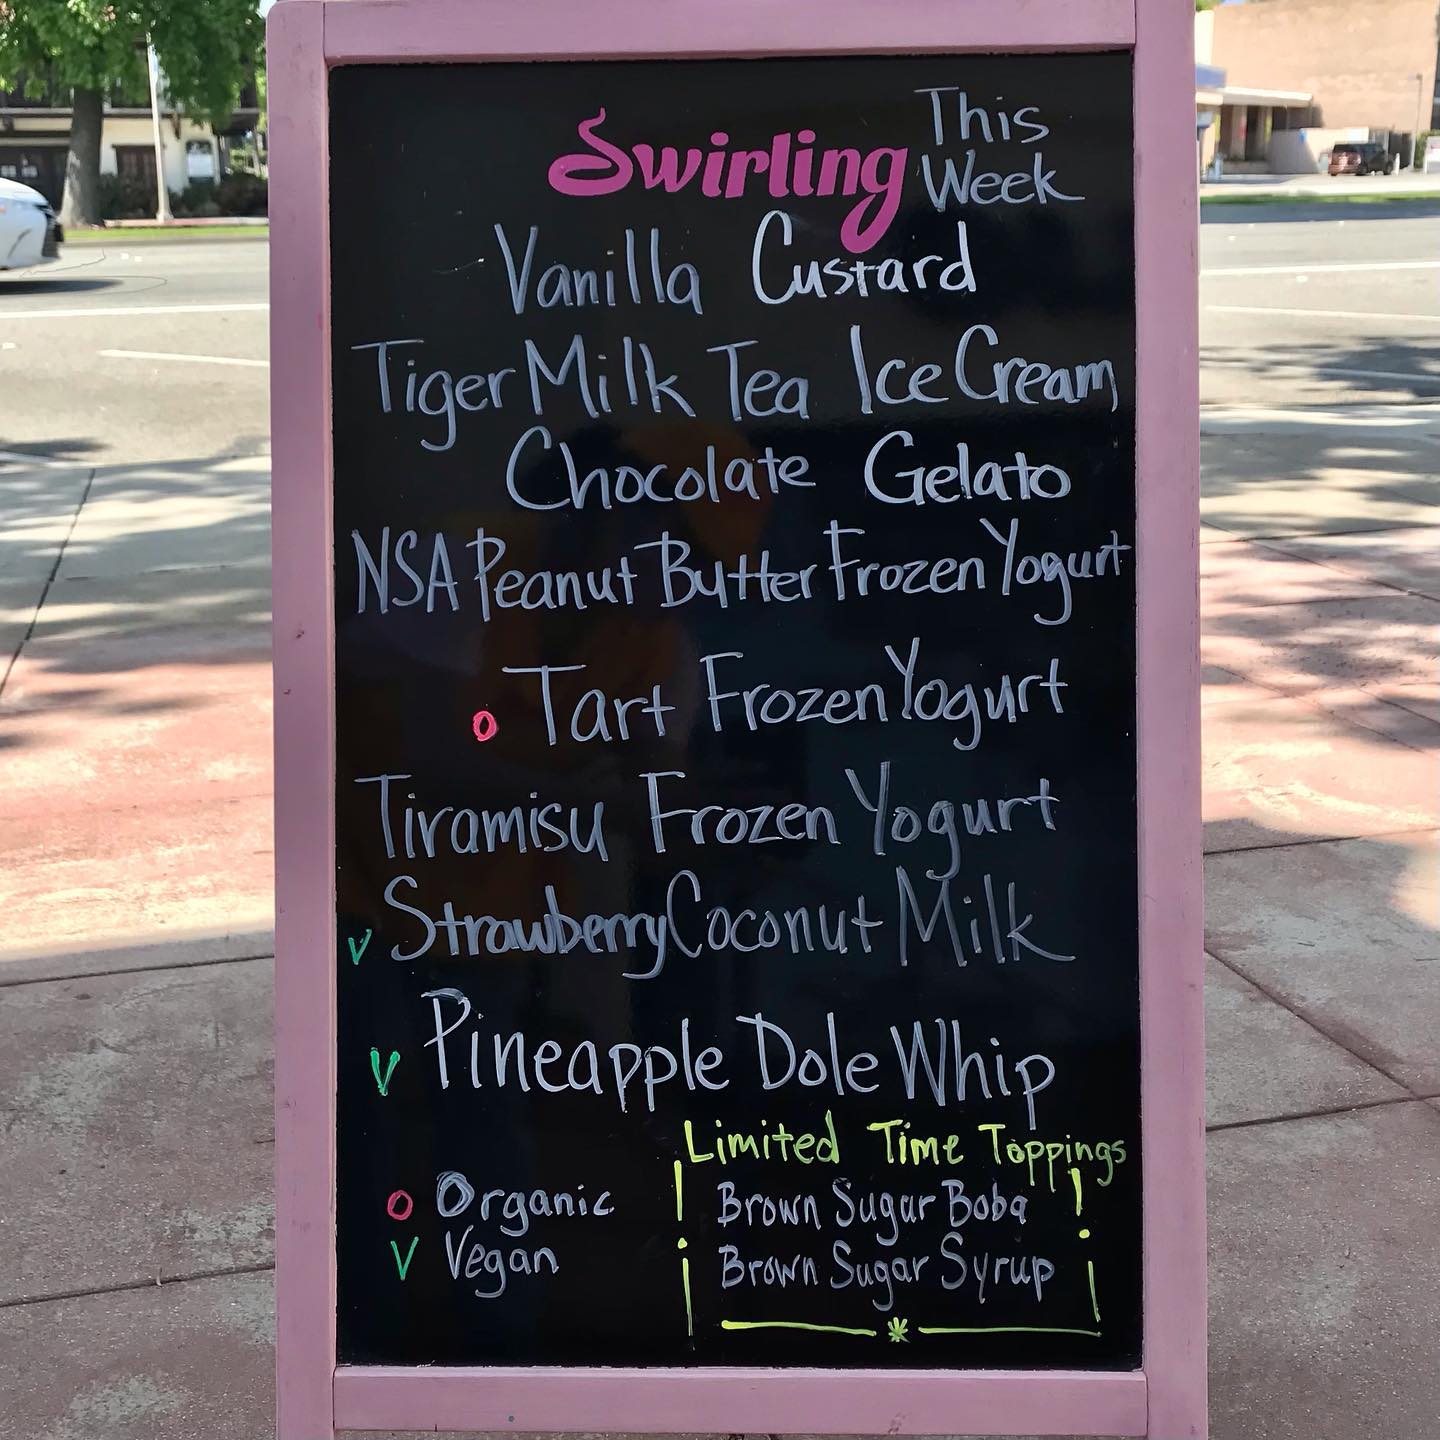 Swirling This Week
Vanilla Custard
Tiger Milk Tea Ice Cream
Chocolate Gelato
NSA Peanut Butter Frozen Yogurt
o Tart Frozen Yogurt
Tiramisu Frozen Yogurt
v Strawberry Coconut Milk
v Pineapple Dole Whip
Limited Time Toppings
Brown Sugar Boba
Brown Sugar Syrup
o Organic
v Vegan